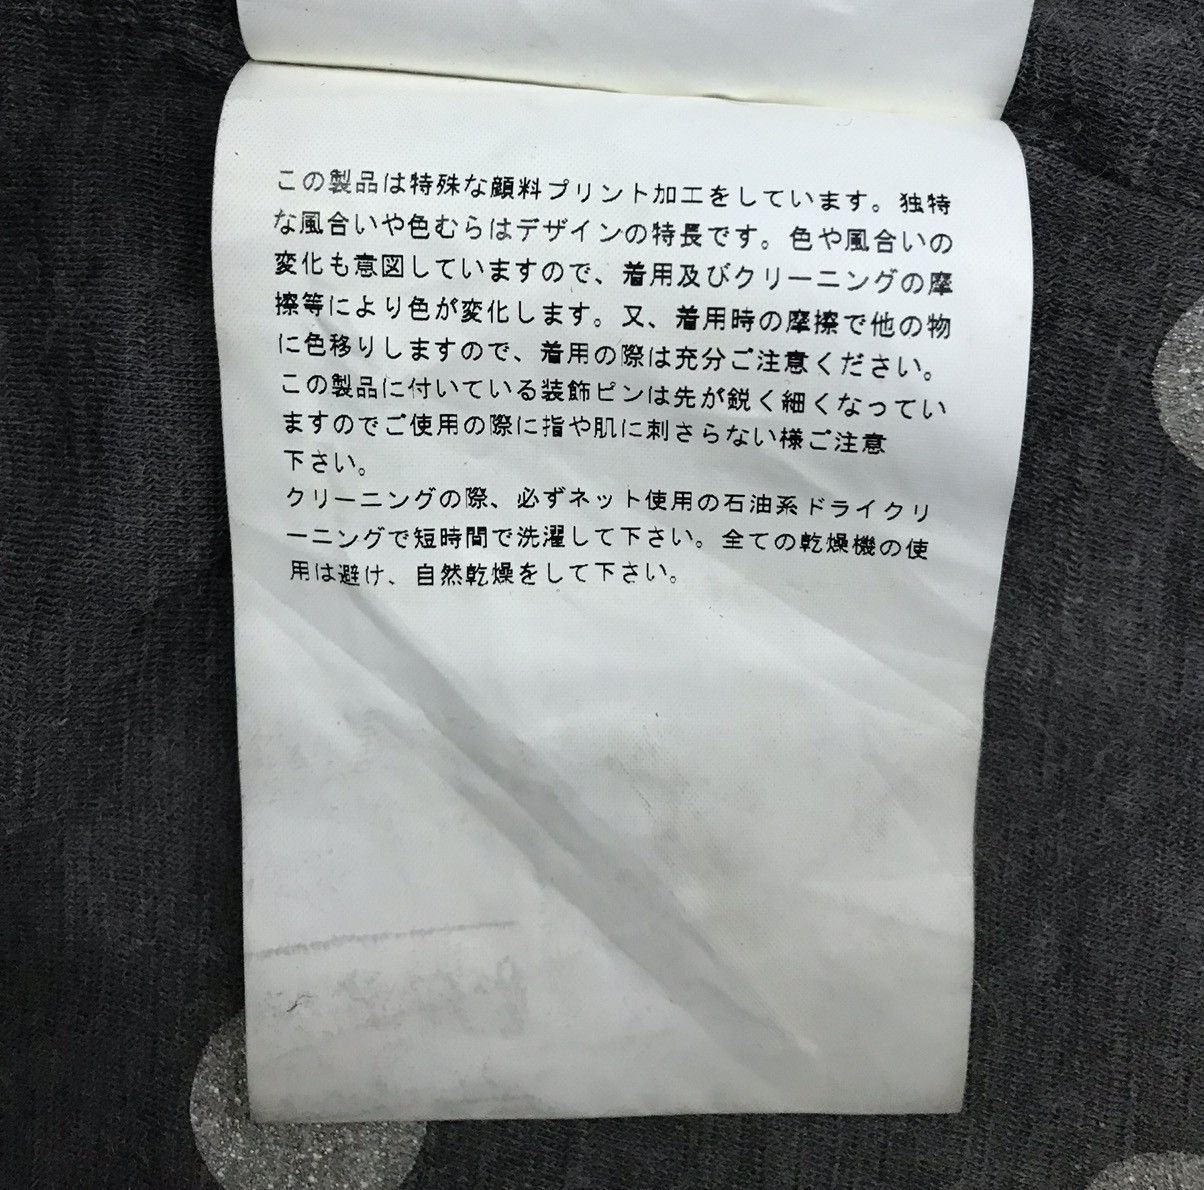 この製品は特殊な顔料プリント加工をしています。独特
な風合いや色むらはデザインの特長です。色や風合いの
変化も意図していますので、着用及びクリーニングの摩
擦等により色が変化します。又、着用時の摩擦で他の物
に色移りしますので、着用の際は充分ご注意ください。
この製品に付いている装飾ピンは先が鋭く細くなってい
ますのでご使用の際に指や肌に刺さらない様ご注意
下さい。
クリーニングの際、必ずネット使用の石油系ドライクリ
ーニングで短時間で洗濯して下さい。全ての乾燥機の使
用は避け、自然乾燥をして下さい。